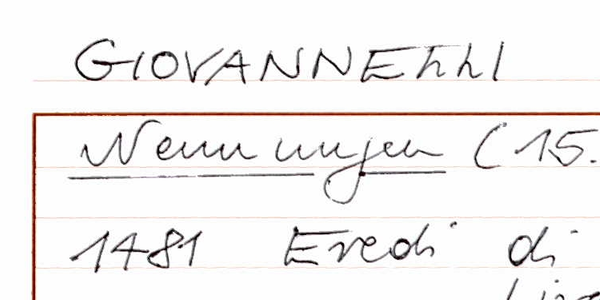 GIOVANNELLI
Nennungen (15.
1481 Eredi di